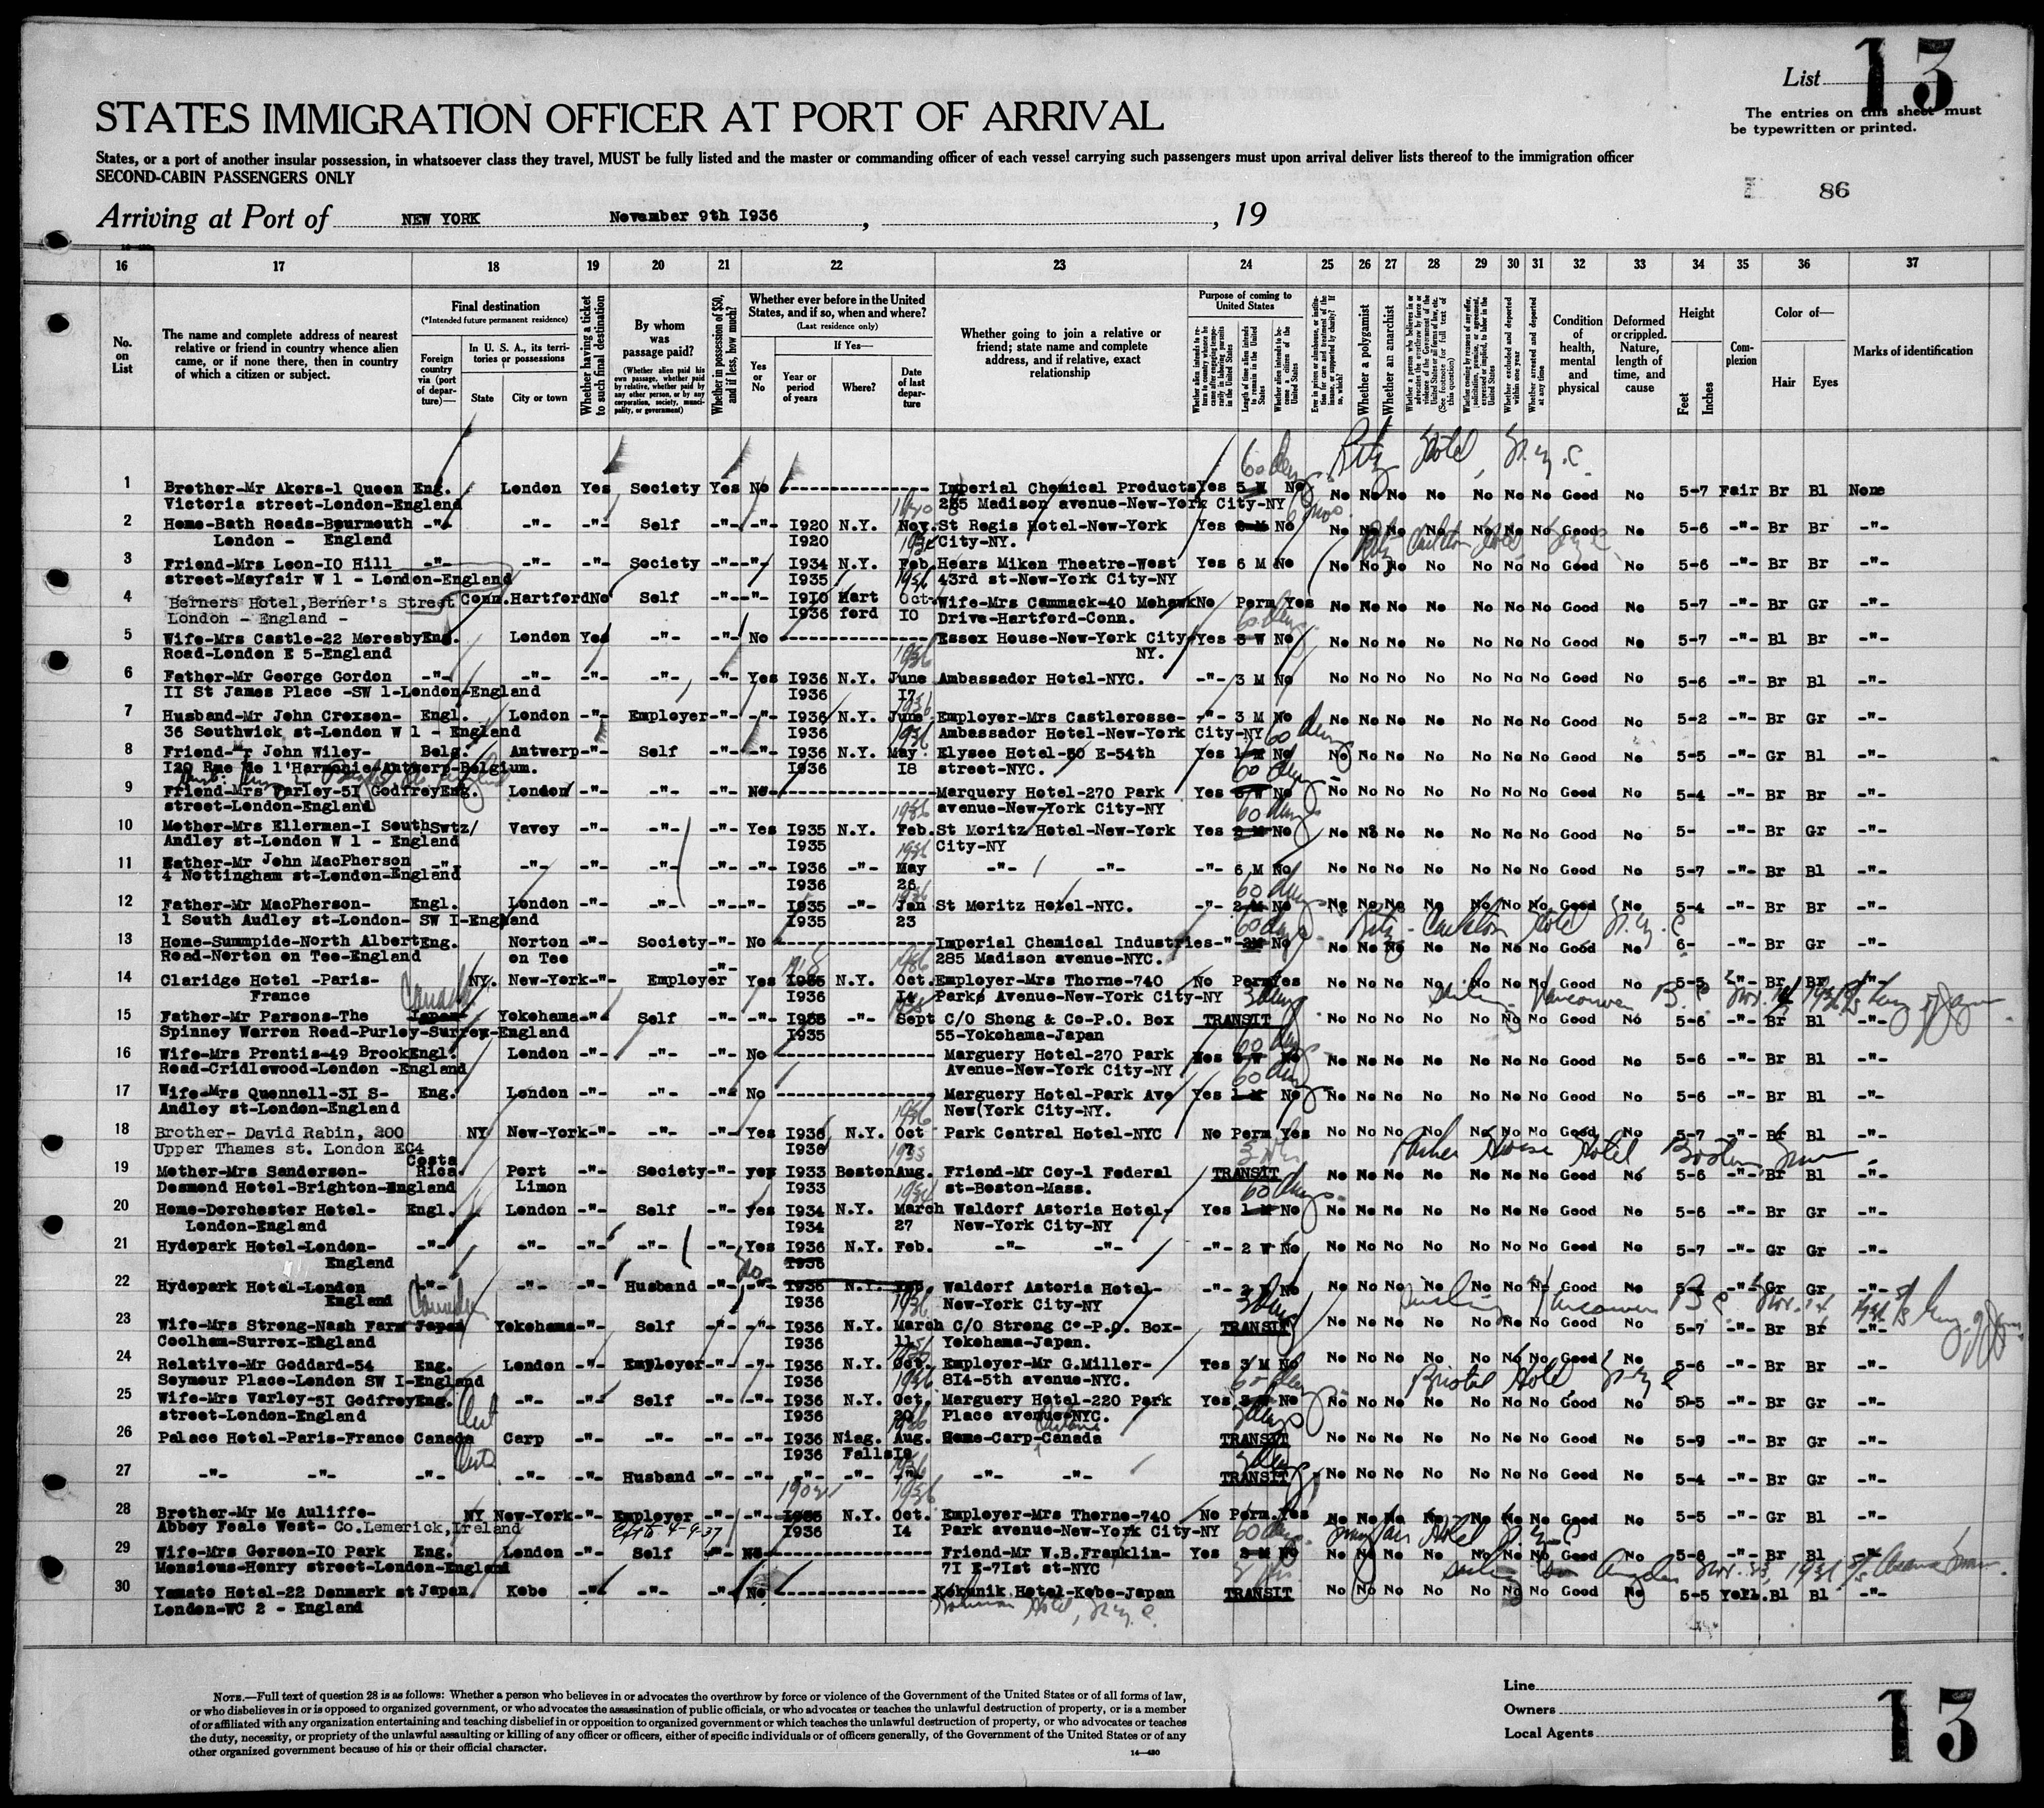 List 13
The entries on this sheet must
be typewritten or printed.
STATES IMMIGRATION OFFICER AT PORT OF ARRIVAL
States, or a port of another insular possession, in whatsoever class they travel, MUST be fully listed and the master or commanding officer of each vessel carrying such passengers must upon arrival deliver lists thereof to the immigration officer
SECOND-CABIN PASSENGERS ONLY
86
Arriving at Port of NEW YORK November 9th I936 , , 19
16 17 18 19 20 21 22 23 24 25 26 27 28 29 30 31 32 33 34 35 36 37
No. on List
The name and complete address of nearest relative or friend in country whence alien came, or if none there, then in country of which a citizen or subject.
Final destination
(*Intended future permanent residence)
Foreign country via (port of departure)—
In U. S. A., its territories or possessions
State
City or town
Whether having a ticket to such final destination
By whom was passage paid?
(Whether alien paid his own passage, whether paid by relative, whether paid by any other person, or by any corporation, society, municipality, or government)
Whether in possession of $50, and if less, how much?
Whether ever before in the United States, and if so, when and where?
(Last residence only)
Yes or No
If Yes—
Year or period of years
Where?
Date of last departure
Whether going to join a relative or friend; state name and complete address, and if relative, exact relationship
Purpose of coming to United States
Length of time alien intends to remain in the United States
Whether alien intends to become a citizen of the United States
Whether a polygamist
Whether an anarchist
Whether excluded and deported within one year
Whether arrested and deported at any time
Condition of health, mental and physical
Deformed or crippled. Nature, length of time, and cause
Height
Feet
Inches
Complexion
Color of—
Hair
Eyes
Marks of identification
60 days Ritz Hotel, N.Y.C.
1 Brother-Mr Akers-1 Queen Eng. London Yes Society Yes No Imperial Chemical Products Yes 5 W No No No No No No No No Good No 5-7 Fair Br Bl None
Victoria street-London-England 285 Madison avenue-New-York City-NY
2 Home-Bath Roads-Bourmouth -"- -"- -"- Self -"- -"- I920 N.Y. Nov. St Regis Hotel-New-York Yes No No No No No No No No Good No 5-6 -"- Br Br -"-
London - England I920 City-NY.
Ritz Carlton Hotel, N.Y.C.
3 Friend-Mrs Leon-IO Hill -"- -"- -"- Society -"- -"- I934 N.Y. Feb. Hears Miken Theatre-West Yes 6 M No No No No No No No No Good No 5-6 -"- Br Br -"-
street-Mayfair W 1 - London-England I935 43rd st-New-York City-NY
4 Berners Hotel,Berner's Street Conn. Hartford No Self -"- -"- I9IO Hart Oct. Wife-Mrs Cammack-40 Mohawk No Perm Yes No No No No No No No Good No 5-7 -"- Br Gr -"-
London - England - I936 ford IO Drive-Hartford-Conn.
60 days
5 Wife-Mrs Castle-22 Moresby Eng. London Yes -"- -"- No Essex House-New-York City- Yes 3 W No No No No No No No No Good No 5-7 -"- Bl Br -"-
Road-London E 5-England NY.
6 Father-Mr George Gordon -"- -"- -"- -"- -"- Yes I936 N.Y. June Ambassador Hotel-NYC. -"- 3 M No No No No No No No No Good No 5-6 -"- Br Bl -"-
II St James Place -SW 1-London-England I936 I7
7 Husband-Mr John Croxson- Engl. London -"- Employer -"- -"- I936 N.Y. June Employer-Mrs Castlerosse- -"- 3 M No No No No No No No No Good No 5-2 -"- Br Gr -"-
36 Southwick st-London W 1 - England I936 Ambassador Hotel-New-York City-NY
60 days
8 Friend-Mr John Wiley- Belg. Antwerp -"- Self -"- -"- I936 N.Y. May Elysee Hotel-50 E-54th Yes 1 M No No No No No No No No Good No 5-5 -"- Gr Bl -"-
I20 Rue de l'Harmonie-Antwerp-Belgium. I936 I8 street-NYC.
60 days
9 Friend-Mrs Varley-5I Godfrey Eng. London -"- -"- -"- No Marquery Hotel-270 Park Yes 3 W No No No No No No No No Good No 5-4 -"- Br Br -"-
street-London-England avenue-New-York City-NY
60 days
10 Mother-Mrs Ellerman-I South Swtz/ Vavey -"- -"- -"- Yes I935 N.Y. Feb. St Moritz Hotel-New-York Yes 2 M No No No No No No No No Good No 5- -"- Br Gr -"-
Audley st-London W 1 - England I935 City-NY
11 Father-Mr John MacPherson -"- -"- -"- -"- -"- -"- I936 -"- May -"- -"- -"- 6 M No No No No No No No No Good No 5-7 -"- Br Bl -"-
4 Nottingham st-London-England I936 26
60 days
12 Father-Mr MacPherson- Engl. London -"- -"- -"- -"- I935 -"- Jan St Moritz Hotel-NYC. -"- 2 M No No No No No No No No Good No 5-4 -"- Br Br -"-
1 South Audley st-London- SW I-England I935 23
60 days Ritz - Carlton Hotel N.Y.C
13 Home-Summpide-North Albert Eng. Norton -"- Society -"- No Imperial Chemical Industries -"- 2M No No No No No No No No Good No 6- -"- Br Gr -"-
Road-Norton on Tee-England on Tee 285 Madison avenue-NYC.
14 Claridge Hotel -Paris- NY. New-York -"- Employer -"- Yes I935 N.Y. Oct. Employer-Mrs Thorne-740 No Perm Yes No No No No No No No Good No 5-5 -"- Br Br -"-
France I936 I4 Park Avenue-New-York City-NY
Canada 3 days sailing Vancouver B.C. Nov. 14 1936
15 Father-Mr Parsons-The Japan Yokehama -"- Self -"- -"- I935 -"- Sept C/O Shong & Co-P.O. Box TRANSIT No No No No No No No Good No 5-6 -"- Br Bl -"-
Spinney Warren Road-Purley-Surrey-England I935 55-Yokehama-Japan
60 days
16 Wife-Mrs Prentis-49 Brook Engl. London -"- -"- -"- No Marguery Hotel-270 Park Yes 3 W No No No No No No No No Good No 5-6 -"- Br Bl -"-
Road-Cridlewood-London -England Avenue-New-York City-NY
60 days
17 Wife-Mrs Quennell-3I S- Eng. London -"- -"- -"- No Marguery Hotel-Park Ave Yes 1 M No No No No No No No No Good No 5-6 -"- Br Bl -"-
Andley st-London-England New(York City-NY.
18 Brother- David Rabin, 200 NY New-York -"- -"- -"- Yes I936 N.Y. Oct Park Central Hotel-NYC No Perm Yes No No No No No No No Good No 5-7 -"- Br Bl -"-
Upper Thames st. London EC4 I936 7
Parker House Hotel Boston
19 Mother-Mrs Sanderson- Costa Rica. Port -"- Society -"- yes I933 Boston Aug. Friend-Mr Coy-1 Federal TRANSIT No No No No No No No Good No 5-6 -"- Br Bl -"-
Desmond Hotel-Brighton-England Limon I933 st-Boston-Mass.
60 days
20 Home-Dorchester Hotel- Engl. London -"- Self -"- yes I934 N.Y. March Waldorf Astoria Hotel- Yes 1 M No No No No No No No No Good No 5-6 -"- Br Gr -"-
London-England I934 27 New-York City-NY
21 Hydepark Hotel-London- -"- -"- -"- -"- -"- Yes I936 N.Y. Feb. -"- -"- -"- 2 W No No No No No No No No Good No 5-7 -"- Gr Gr -"-
England I936
22 Hydepark Hotel-London -"- -"- -"- Husband -"- -"- I936 N.Y. Feb. Waldorf Astoria Hotel- -"- 2 W No No No No No No No No Good No -"- Gr Gr -"-
England I936 New-York City-NY
3 days sailing Vancouver B.C. Nov. 14
23 Wife-Mrs Strong-Nash Farm Japan Yokehama -"- Self -"- -"- I936 N.Y. March C/O Strong Co-P.O. Box- TRANSIT No No No No No No No Good No 5-7 -"- Br Br -"-
Coolham-Surrex-England I936 11 Yokehama-Japan.
24 Relative-Mr Goddard-54 Eng. London -"- Employer -"- -"- I936 N.Y. Oct. Employer-Mr G.Miller- Yes 3 M No No No No No No No No Good No 5-6 -"- Br Br -"-
Seymour Place-London SW I-England I936 8I4-5th avenue-NYC.
60 days Bristol Hotel N.Y.C
25 Wife-Mrs Varley-5I Godfrey Eng. -"- -"- Self -"- -"- I936 N.Y. Oct. Marguery Hotel-220 Park Yes No No No No No No No No Good No 5-5 -"- Br Gr -"-
street-London-England I936 20 Place avenue-NYC.
Ont 3 days
26 Palace Hotel-Paris-France Canada Carp -"- -"- -"- -"- I936 Niag. Aug. Home-Carp-Canada TRANSIT No No No No No No No Good No 5-9 -"- Br Gr -"-
I936 Falls I2
27 -"- -"- -"- -"- -"- Husband -"- -"- -"- -"- -"- -"- -"- TRANSIT No No No No No No No Good No 5-4 -"- Br Gr -"-
28 Brother-Mr Mc Auliffe- NY New-York -"- Employer -"- -"- N.Y. Oct. Employer-Mrs Thorne-740 No Perm. Yes No No No No No No No Good No 5-5 -"- Gr Bl -"-
Abbey Feale West- Co.Lemerick,Ireland I936 I4 Park avenue-New-York City-NY
60 days Mayfair Hotel N.Y.C
29 Wife-Mrs Gerson-IO Park Eng. London -"- Self -"- No Friend-Mr W.B.Franklin- Yes 2 M No No No No No No No No Good No 5-6 -"- Br Bl -"-
Mensious-Henry street-London-England 7I E-7Ist st-NYC
sailing Los Angeles Nov. 23, 1936
30 Yamato Hotel-22 Denmark st Japan Kobe -"- -"- -"- No Kokunik Hotel-Kobe-Japan TRANSIT No No No No No No No Good No 5-5 Yell. Bl Bl -"-
London-WC 2 - England Hotel, N.Y.C.
NOTE.—Full text of question 28 is as follows: Whether a person who believes in or advocates the overthrow by force or violence of the Government of the United States or of all forms of law,
or who disbelieves in or is opposed to organized government, or who advocates the assassination of public officials, or who advocates or teaches the unlawful destruction of property, or is a member
of or affiliated with any organization entertaining and teaching disbelief in or opposition to organized government or which teaches the unlawful destruction of property, or who advocates or teaches
the duty, necessity, or propriety of the unlawful assaulting or killing of any officer or officers, either of specific individuals or of officers generally, of the Government of the United States or of any
other organized government because of his or their official character.
14—480
Line
Owners
Local Agents
13